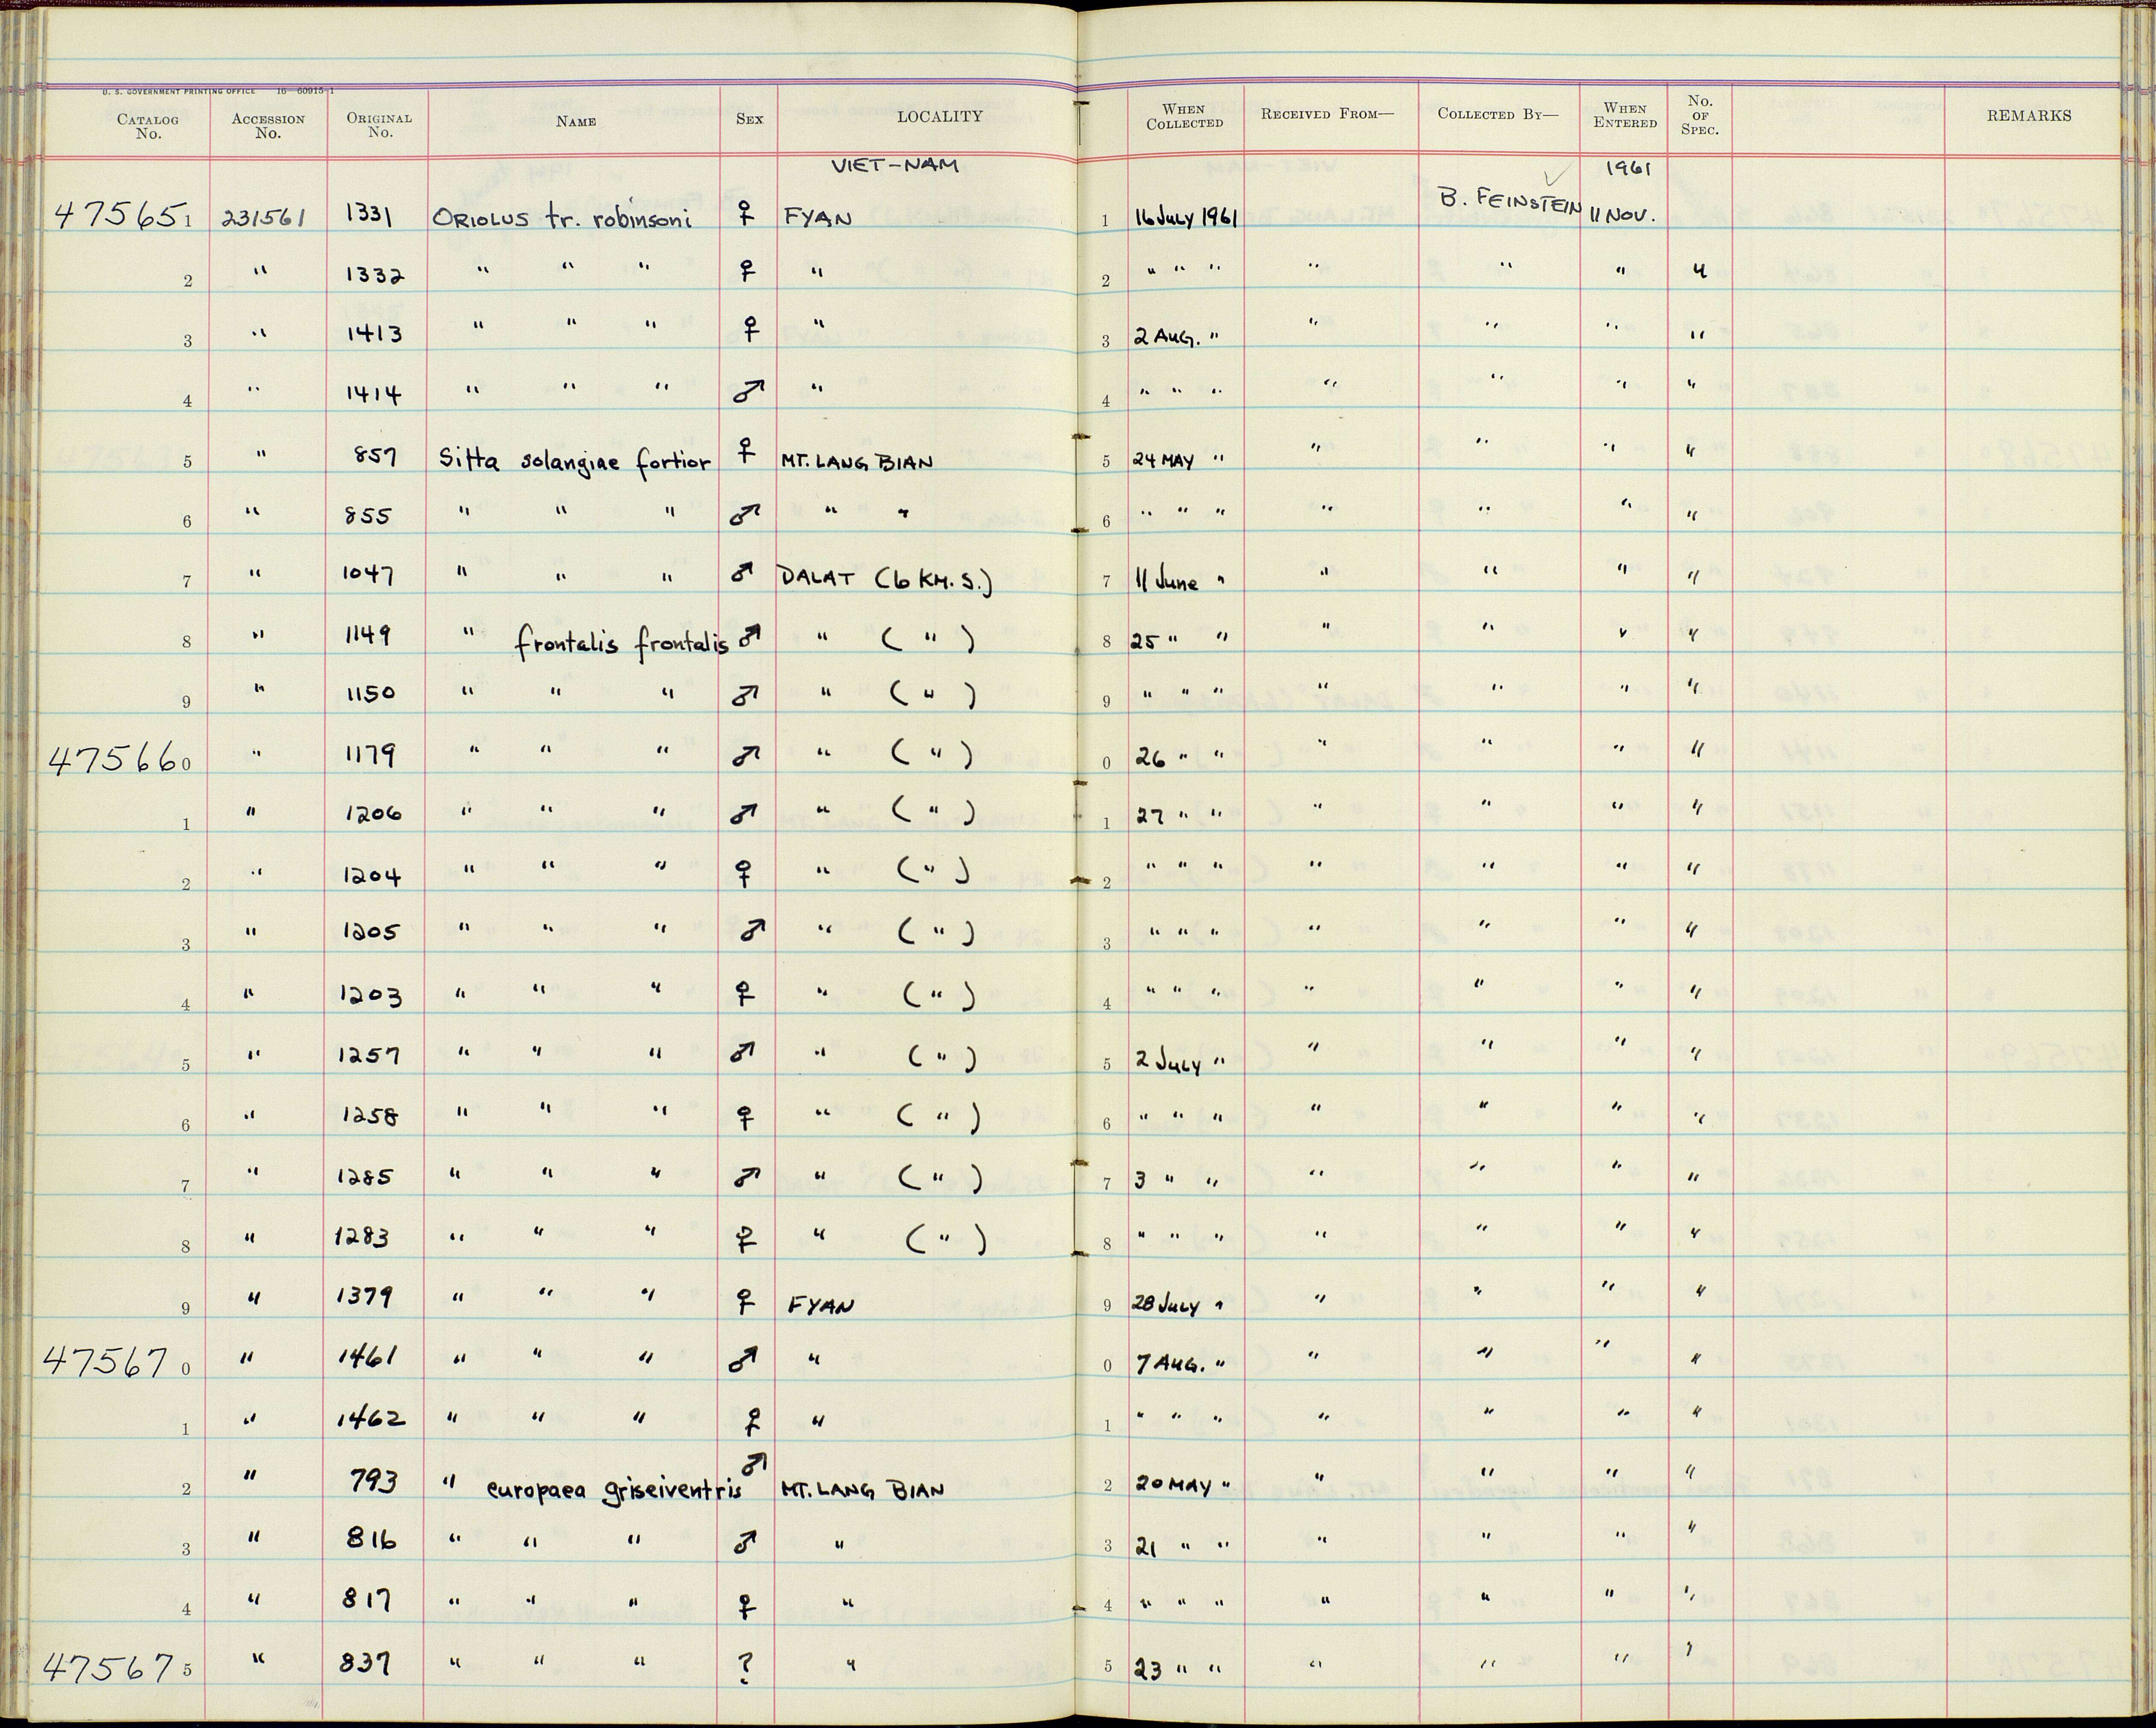 U. S. GOVERNMENT PRINTING OFFICE 16—60915-1
CATALOG No. ACCESSION No. ORIGINAL No. NAME SEX LOCALITY WHEN COLLECTED RECEIVED FROM— COLLECTED BY— WHEN ENTERED No. OF SPEC. REMARKS
VIET-NAM 1961
475651 231561 1331 ORIOLUS tr. robinsoni ♀ FYAN 1 16 July 1961 B. FEINSTEIN 11 NOV.
2 " 1332 " " " ♀ " 2 " " " " " " "
3 " 1413 " " " ♀ " 3 2 AUG. " " " " "
4 " 1414 " " " ♂ " 4 " " " " " " "
5 " 857 Sitta solangiae fortior ♀ MT. LANG BIAN 5 24 MAY " " " " "
6 " 855 " " " ♂ " " 6 " " " " " " "
7 " 1047 " " " ♂ DALAT (6 KM. S.) 7 11 June " " " " "
8 " 1149 " frontalis frontalis ♂ " ( " ) 8 25 " " " " " "
9 " 1150 " " " ♂ " ( " ) 9 " " " " " " "
475660 " 1179 " " " ♂ " ( " ) 0 26 " " " " " "
1 " 1206 " " " ♂ " ( " ) 1 27 " " " " " "
2 " 1204 " " " ♀ " ( " ) 2 " " " " " " "
3 " 1205 " " " ♂ " ( " ) 3 " " " " " " "
4 " 1203 " " " ♀ " ( " ) 4 " " " " " " "
5 " 1257 " " " ♂ " ( " ) 5 2 July " " " " "
6 " 1258 " " " ♀ " ( " ) 6 " " " " " " "
7 " 1285 " " " ♂ " ( " ) 7 3 " " " " " "
8 " 1283 " " " ♀ " ( " ) 8 " " " " " " "
9 " 1379 " " " ♀ FYAN 9 28 July " " " " "
475670 " 1461 " " " ♂ " 0 7 AUG. " " " " "
1 " 1462 " " " ♀ " 1 " " " " " " "
2 " 793 " europaea griseiventris ♂ MT. LANG BIAN 2 20 MAY " " " " "
3 " 816 " " " ♂ " 3 21 " " " " " "
4 " 817 " " " ♀ " 4 " " " " " " "
475675 " 837 " " " ? " 5 23 " " " " " "